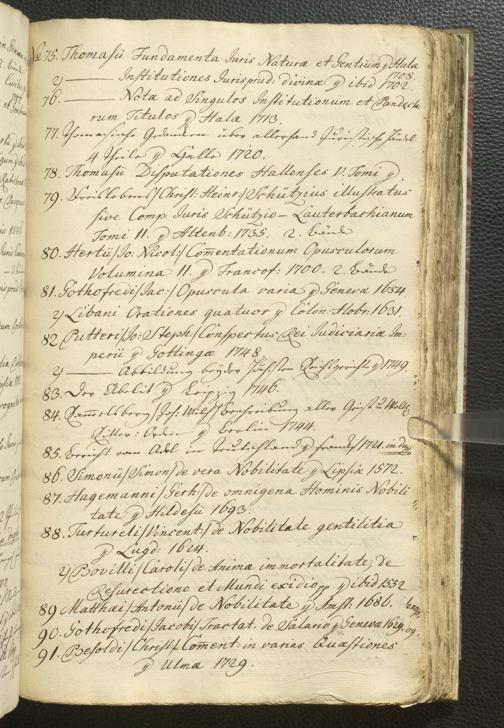 No 75. Thomasii Fundamenta Iuris Naturæ et Gentium p Halæ 1708.
2) —— Institutiones Jurisprud: divinæ p ibid 1702
76. —— Notæ ad Singulos Institutionum et Pandecta
rum Titulos p Halæ 1713.
77. Thomasische Gedancken über allerhand Juristische Händel
4 Theile p Halle 1720.
78. Thomasii Disputationes Hallenses V. Tomi p
79. /Christ: Heinr:/ Schützius illustratus
sive Comp: Juris Schützio-Lauterbachianum
Tomi II. p Altenb: 1735. 2. bände
80. Hertii /Jo: Nicol:/ Com̄entationum Opusculorum
Volumina II p Francof: 1700. 2. bände
81. Gothofredi /Jac:/ Opuscula varia p Genevæ 1654
2) Libani Orationes quatuor p Colon: Allobr: 1631.
82 Pütteri /Jo: Steph:/ Conspectus Rei Judiciariæ Im-
perii p Gottingæ 1748
2) —— Abbildung beyder höchsten Reichsgerichte p 1749
83. Der Adelit p Leipzig 1746.
84. /Jos: Wil:/ Beschreibung aller Geist u. Weltl.
Ritter-Orden p Berlin 1744.
85. Bericht vom Adel in Teutschland p 1721.
86. Simonii /Simon/ de vera Nobilitate p Lipsiæ 1572.
87. Hagemanni /Gerh:/ de omnigena Hominis Nobili
tate p Hildesii 1693.
88. Turtureti /Vincent:/ de Nobilitate gentilitia
p Lugd: 1624.
2) Bovilli /Caroli/ de Animæ immortalitate, de
Resurectione et Mundi exidio p ibid 1552
89 Matthæi /Antonii/ de Nobilitate p Amst: 1686.
90. Gothofredi /Jacobi/ Tractat. de Salario p Genevæ 1629.
91. Besoldi /Christ:/ Com̄ent: in varias Quæstiones
p Ulmæ 1729.